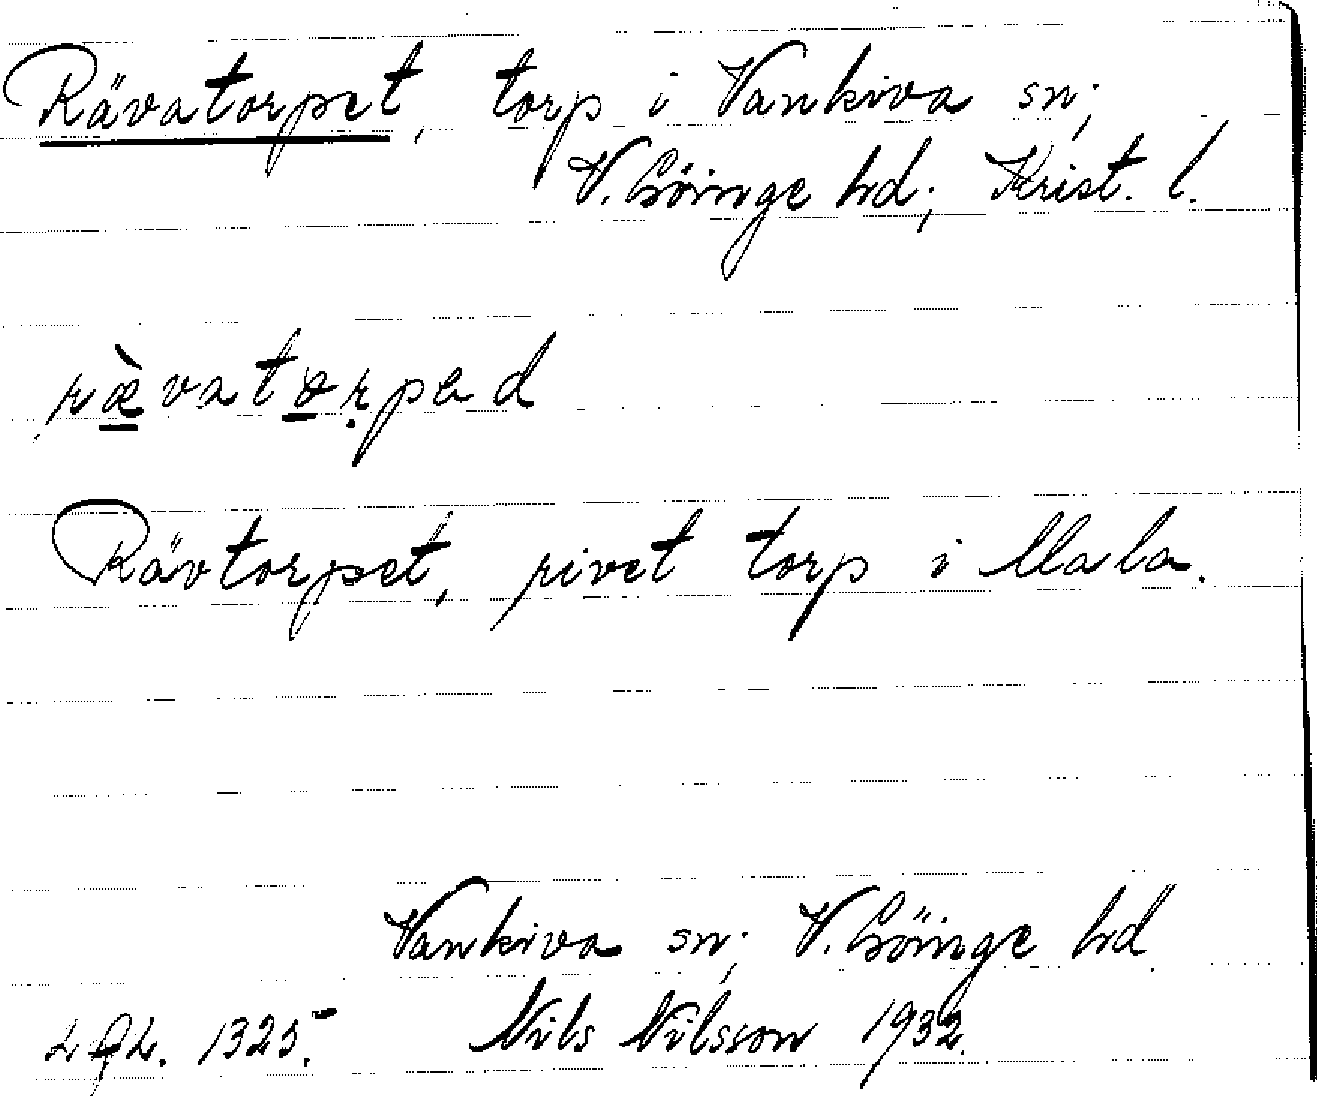 Rävatorpet, torp i Vankiva sn;
V. Göinge hd; Krist. l.
rævatorpad
Rävtorpet, rivet torp i Mala.
Vankiva sn; V. Göinge hd
1325. Nils Nilsson 1932.